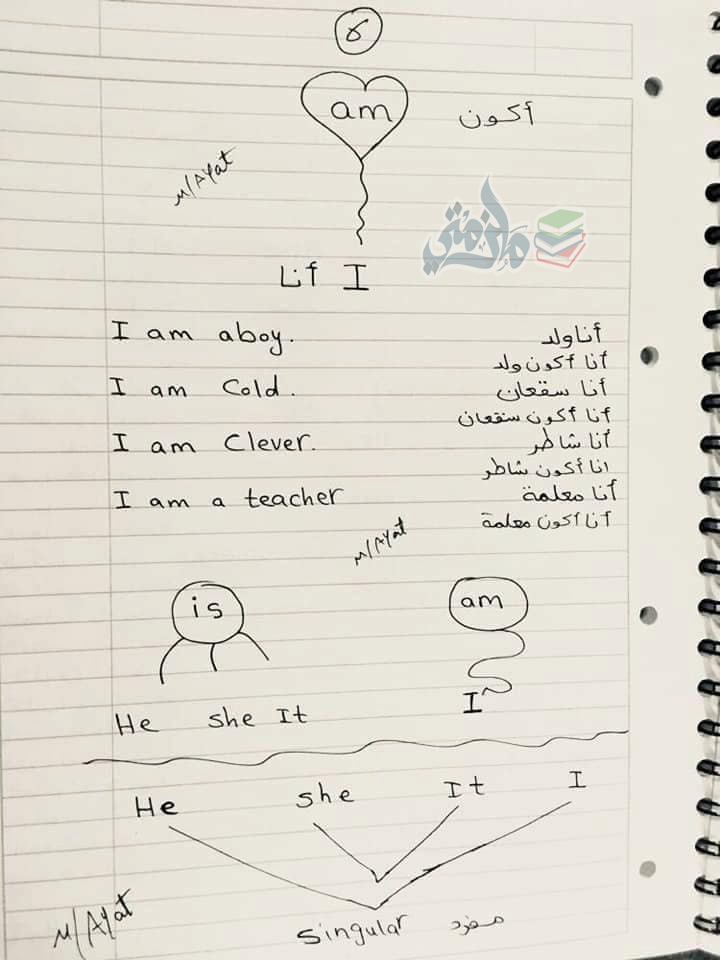 ٤
am أكون
M/AYat
ملزمتي
أنا I
I am aboy. أنا ولد
أنا أكون ولد
I am Cold. أنا سقعان
أنا أكون سقعان
I am Clever. أنا شاطر
انا أكون شاطر
I am a teacher أنا معلمة
أنا أكون معلمة
M/AYat
is am
He she It I
He she It I
M/AYat
singular مفرد